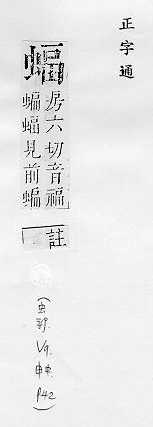 正字通
蝠
房六切音福
蝙蝠見前蝙
註
(虫部. V9. 申集. P42)